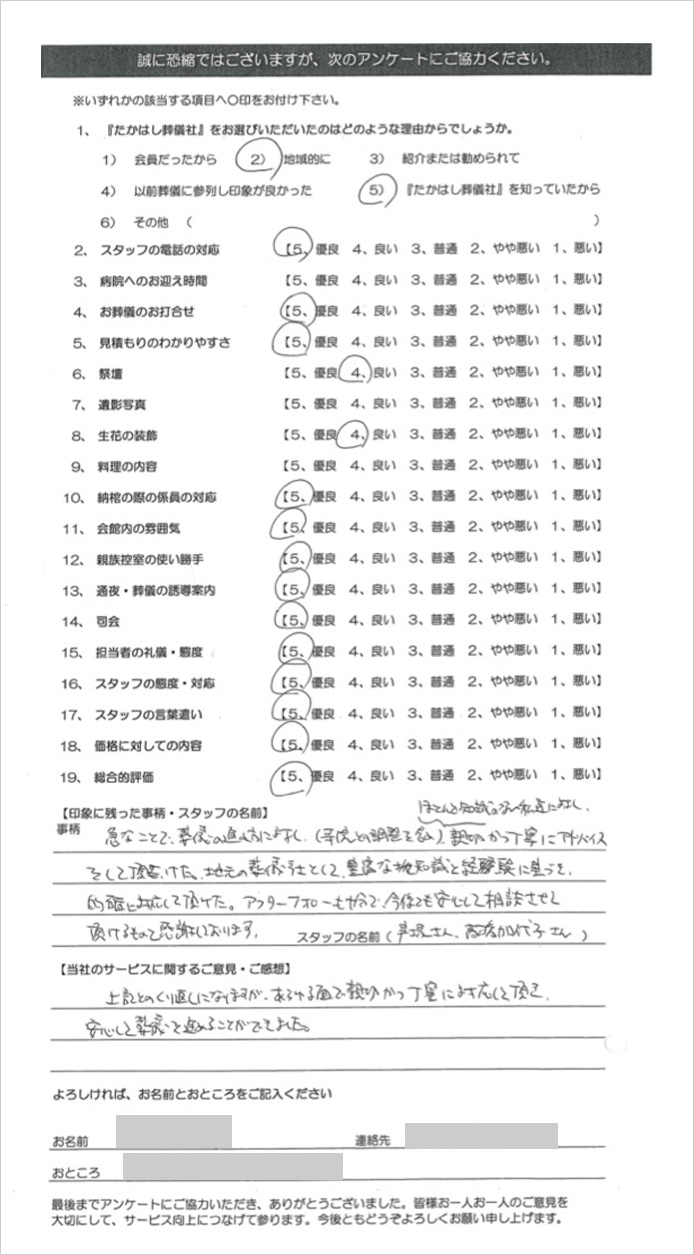 誠に恐縮ではございますが、次のアンケートにご協力ください。
※いずれかの該当する項目へ〇印をお付け下さい。
1、『たかはし葬儀社』をお選びいただいたのはどのような理由からでしょうか。
1） 会員だったから 2） 地域的に 3） 紹介または勧められて
4） 以前葬儀に参列し印象が良かった 5） 『たかはし葬儀社』を知っていたから
6） その他 （ ）
2、スタッフの電話の対応 【5、優良 4、良い 3、普通 2、やや悪い 1、悪い】
3、病院へのお迎え時間 【5、優良 4、良い 3、普通 2、やや悪い 1、悪い】
4、お葬儀のお打合せ 【5、優良 4、良い 3、普通 2、やや悪い 1、悪い】
5、見積もりのわかりやすさ 【5、優良 4、良い 3、普通 2、やや悪い 1、悪い】
6、祭壇 【5、優良 4、良い 3、普通 2、やや悪い 1、悪い】
7、遺影写真 【5、優良 4、良い 3、普通 2、やや悪い 1、悪い】
8、生花の装飾 【5、優良 4、良い 3、普通 2、やや悪い 1、悪い】
9、料理の内容 【5、優良 4、良い 3、普通 2、やや悪い 1、悪い】
10、納棺の際の係員の対応 【5、優良 4、良い 3、普通 2、やや悪い 1、悪い】
11、会館内の雰囲気 【5、優良 4、良い 3、普通 2、やや悪い 1、悪い】
12、親族控室の使い勝手 【5、優良 4、良い 3、普通 2、やや悪い 1、悪い】
13、通夜・葬儀の誘導案内 【5、優良 4、良い 3、普通 2、やや悪い 1、悪い】
14、司会 【5、優良 4、良い 3、普通 2、やや悪い 1、悪い】
15、担当者の礼儀・態度 【5、優良 4、良い 3、普通 2、やや悪い 1、悪い】
16、スタッフの態度・対応 【5、優良 4、良い 3、普通 2、やや悪い 1、悪い】
17、スタッフの言葉遣い 【5、優良 4、良い 3、普通 2、やや悪い 1、悪い】
18、価格に対しての内容 【5、優良 4、良い 3、普通 2、やや悪い 1、悪い】
19、総合的評価 【5、優良 4、良い 3、普通 2、やや悪い 1、悪い】
【印象に残った事柄・スタッフの名前】
ほとんど知識のない私達に対し、
事柄 急なことで、葬儀の進め方に対し、（寺院との調整を含む）親切かつ丁寧にアドバイス
をして頂きました。地元の葬儀社として、豊富な知識と経験に基づき、
的確に対応して頂けた。アフターフォローも十分で、今後とも安心して相談させて
頂けるものと感謝しております。 スタッフの名前（ さん、高橋加代子さん ）
【当社のサービスに関するご意見・ご感想】
上記とのくり返しになりますが、あらゆる面で親切かつ丁寧に対応して頂き、
安心して葬儀を進めることができました。
よろしければ、お名前とおところをご記入ください
お名前 連絡先
おところ
最後までアンケートにご協力いただき、ありがとうございました。皆様お一人お一人のご意見を
大切にして、サービス向上につなげて参ります。今後ともどうぞよろしくお願い申し上げます。